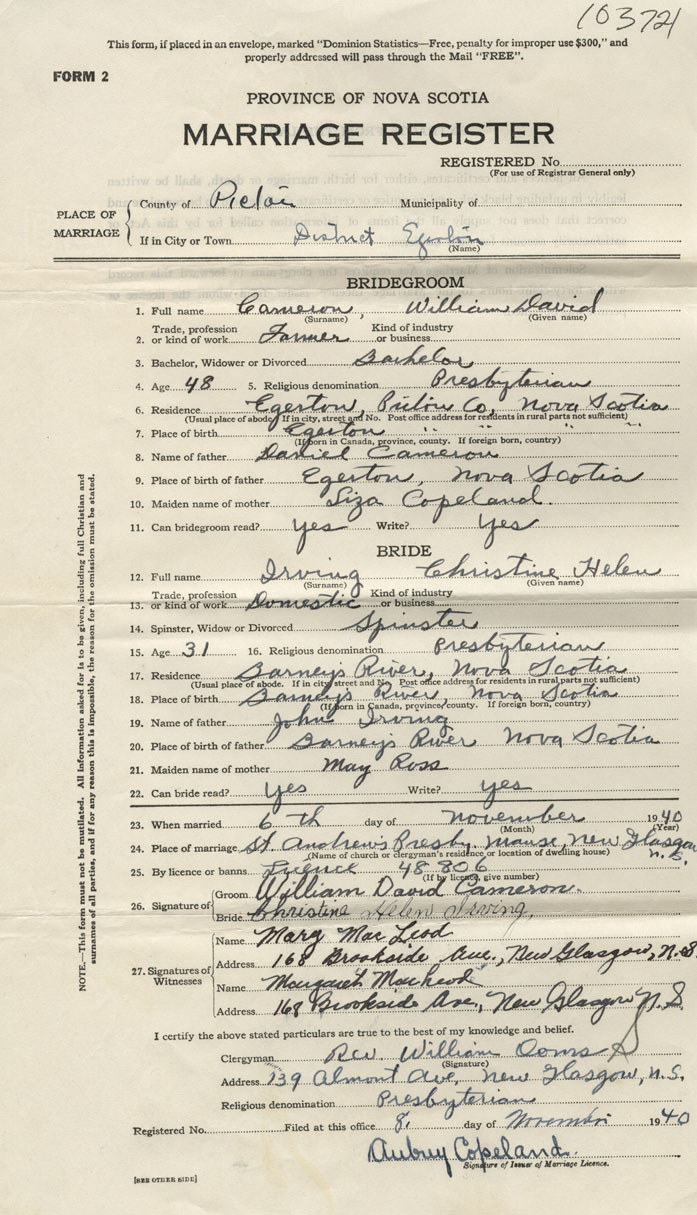 10372
This form, if placed in an envelope, marked "Dominion Statistics—Free, penalty for improper use $300," and
properly addressed will pass through the Mail "FREE".
FORM 2
PROVINCE OF NOVA SCOTIA
MARRIAGE REGISTER
REGISTERED No.
(For use of Registrar General only)
PLACE OF MARRIAGE
County of Pictou Municipality of
If in City or Town District Egerton
(Name)
BRIDEGROOM
1. Full name Cameron, William David
(Surname) (Given name)
Trade, profession Kind of industry
2. or kind of work Farmer or business
3. Bachelor, Widower or Divorced Bachelor
4. Age 48 5. Religious denomination Presbyterian
6. Residence Egerton, Pictou Co, Nova Scotia
(Usual place of abode. If in city, street and No. Post office address for residents in rural parts not sufficient)
7. Place of birth Egerton " " " "
(If born in Canada, province, county. If foreign born, country)
8. Name of father Daniel Cameron
9. Place of birth of father Egerton, Nova Scotia
10. Maiden name of mother Liza Copeland.
11. Can bridegroom read? Yes Write? Yes
BRIDE
12. Full name Irving Christine Helen
(Surname) (Given name)
Trade, profession Kind of industry
13. or kind of work Domestic or business
14. Spinster, Widow or Divorced Spinster
15. Age 31 16. Religious denomination Presbyterian
17. Residence Barney's River, Nova Scotia
(Usual place of abode. If in city, street and No. Post office address for residents in rural parts not sufficient)
18. Place of birth Barney's River Nova Scotia
(If born in Canada, province, county. If foreign born, country)
19. Name of father John Irving
20. Place of birth of father Barney's River Nova Scotia
21. Maiden name of mother May Ross
22. Can bride read? Yes Write? Yes
23. When married 6th day of November 1940
(Month) (Year)
24. Place of marriage St. Andrew's Presby. Manse, New Glasgow N.S.
(Name of church or clergyman's residence or location of dwelling house)
25. By licence or banns Licence 48806
(If by licence, give number)
26. Signature of
Groom William David Cameron.
Bride Christine Helen Irving,
27. Signatures of Witnesses
Name Mary MacLeod
Address 168 Brookside Ave., New Glasgow, N.S.
Name Margaret MacLeod
Address 168 Brookside Ave., New Glasgow N.S.
I certify the above stated particulars are true to the best of my knowledge and belief.
Clergyman Rev. William Ooms
(Signature)
Address 139 Almont Ave, New Glasgow, N.S.
Religious denomination Presbyterian
Registered No. Filed at this office 8, day of November 1940
Aubrey Copeland.
Signature of Issuer of Marriage Licence.
[SEE OTHER SIDE]
NOTE.—This form must not be mutilated. All information asked for is to be given, including full Christian and
surnames of all parties, and if for any reason this is impossible, the reason for the omission must be stated.